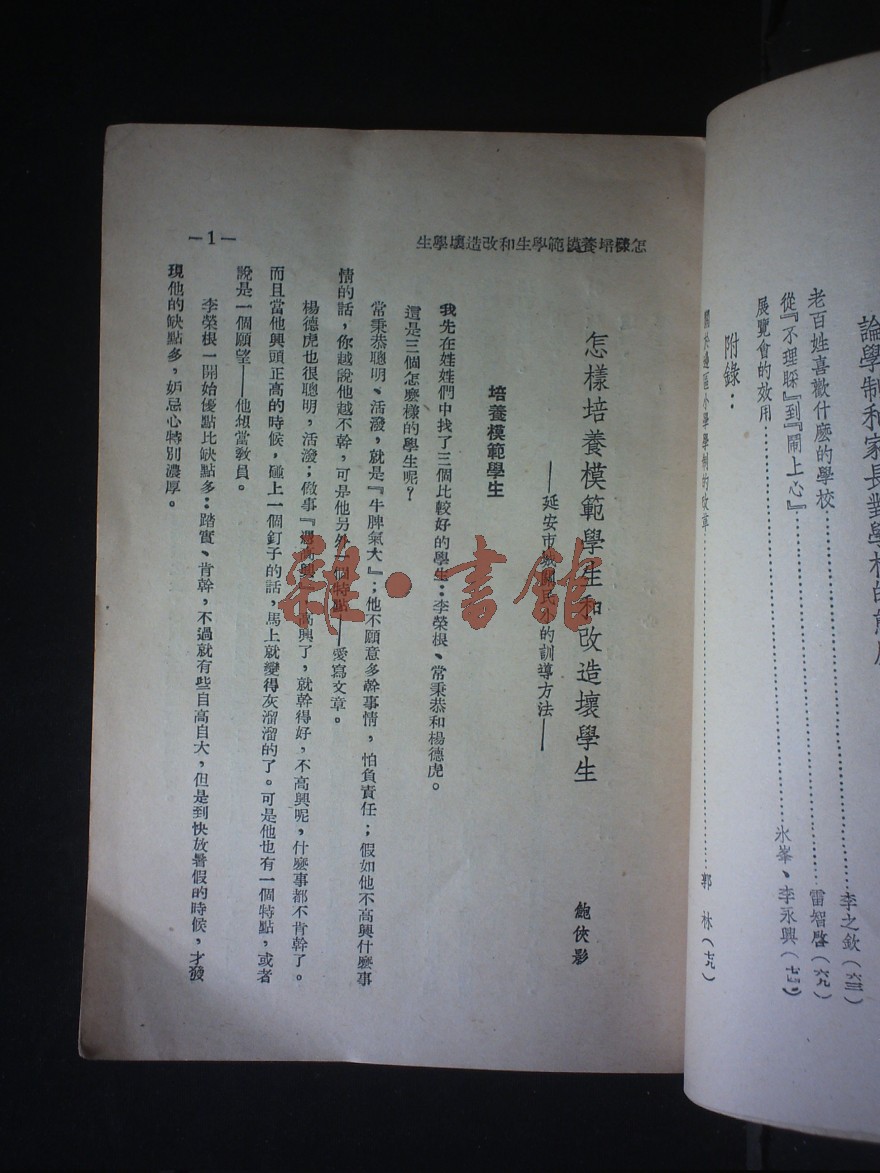 論學制和家長對學校的
李之欽（六三）
老百姓喜歡什麽的學校……雷智啓（六九）
從『不理睬』到『鬧上心』……氷峯、李永興（七四）
展覽會的效用……
附錄：
關於邊區小學學制的改革……郭 林（七九）
怎樣培養模範學生和改造壞學生
—1—
怎樣培養模範學生和改造壞學生
——延安市城關民小的訓導方法——
鮑俠影
培養模範學生
我先在娃娃們中找了三個比較好的學生：李榮根、常秉恭和楊德虎。
這是三個怎麽樣的學生呢？
常秉恭聰明、活潑，就是『牛脾氣大』；他不願意多幹事情，怕負責任；假如他不高興什麽事
情的話，你越說他越不幹，可是他另外一個特點——愛寫文章。
楊德虎也很聰明，活潑；做事『憑高興』，高興了，就幹得好，不高興呢，什麽事都不肯幹了。
而且當他興頭正高的時候，碰上一個釘子的話，馬上就變得灰溜溜的了。可是他也有一個特點，或者
說是一個願望——他想當教員。
李榮根一開始優點比缺點多：踏實、肯幹，不過就有些自高自大，但是到快放暑假的時候，才發
現他的缺點多，妒忌心特別濃厚。
雜·書館